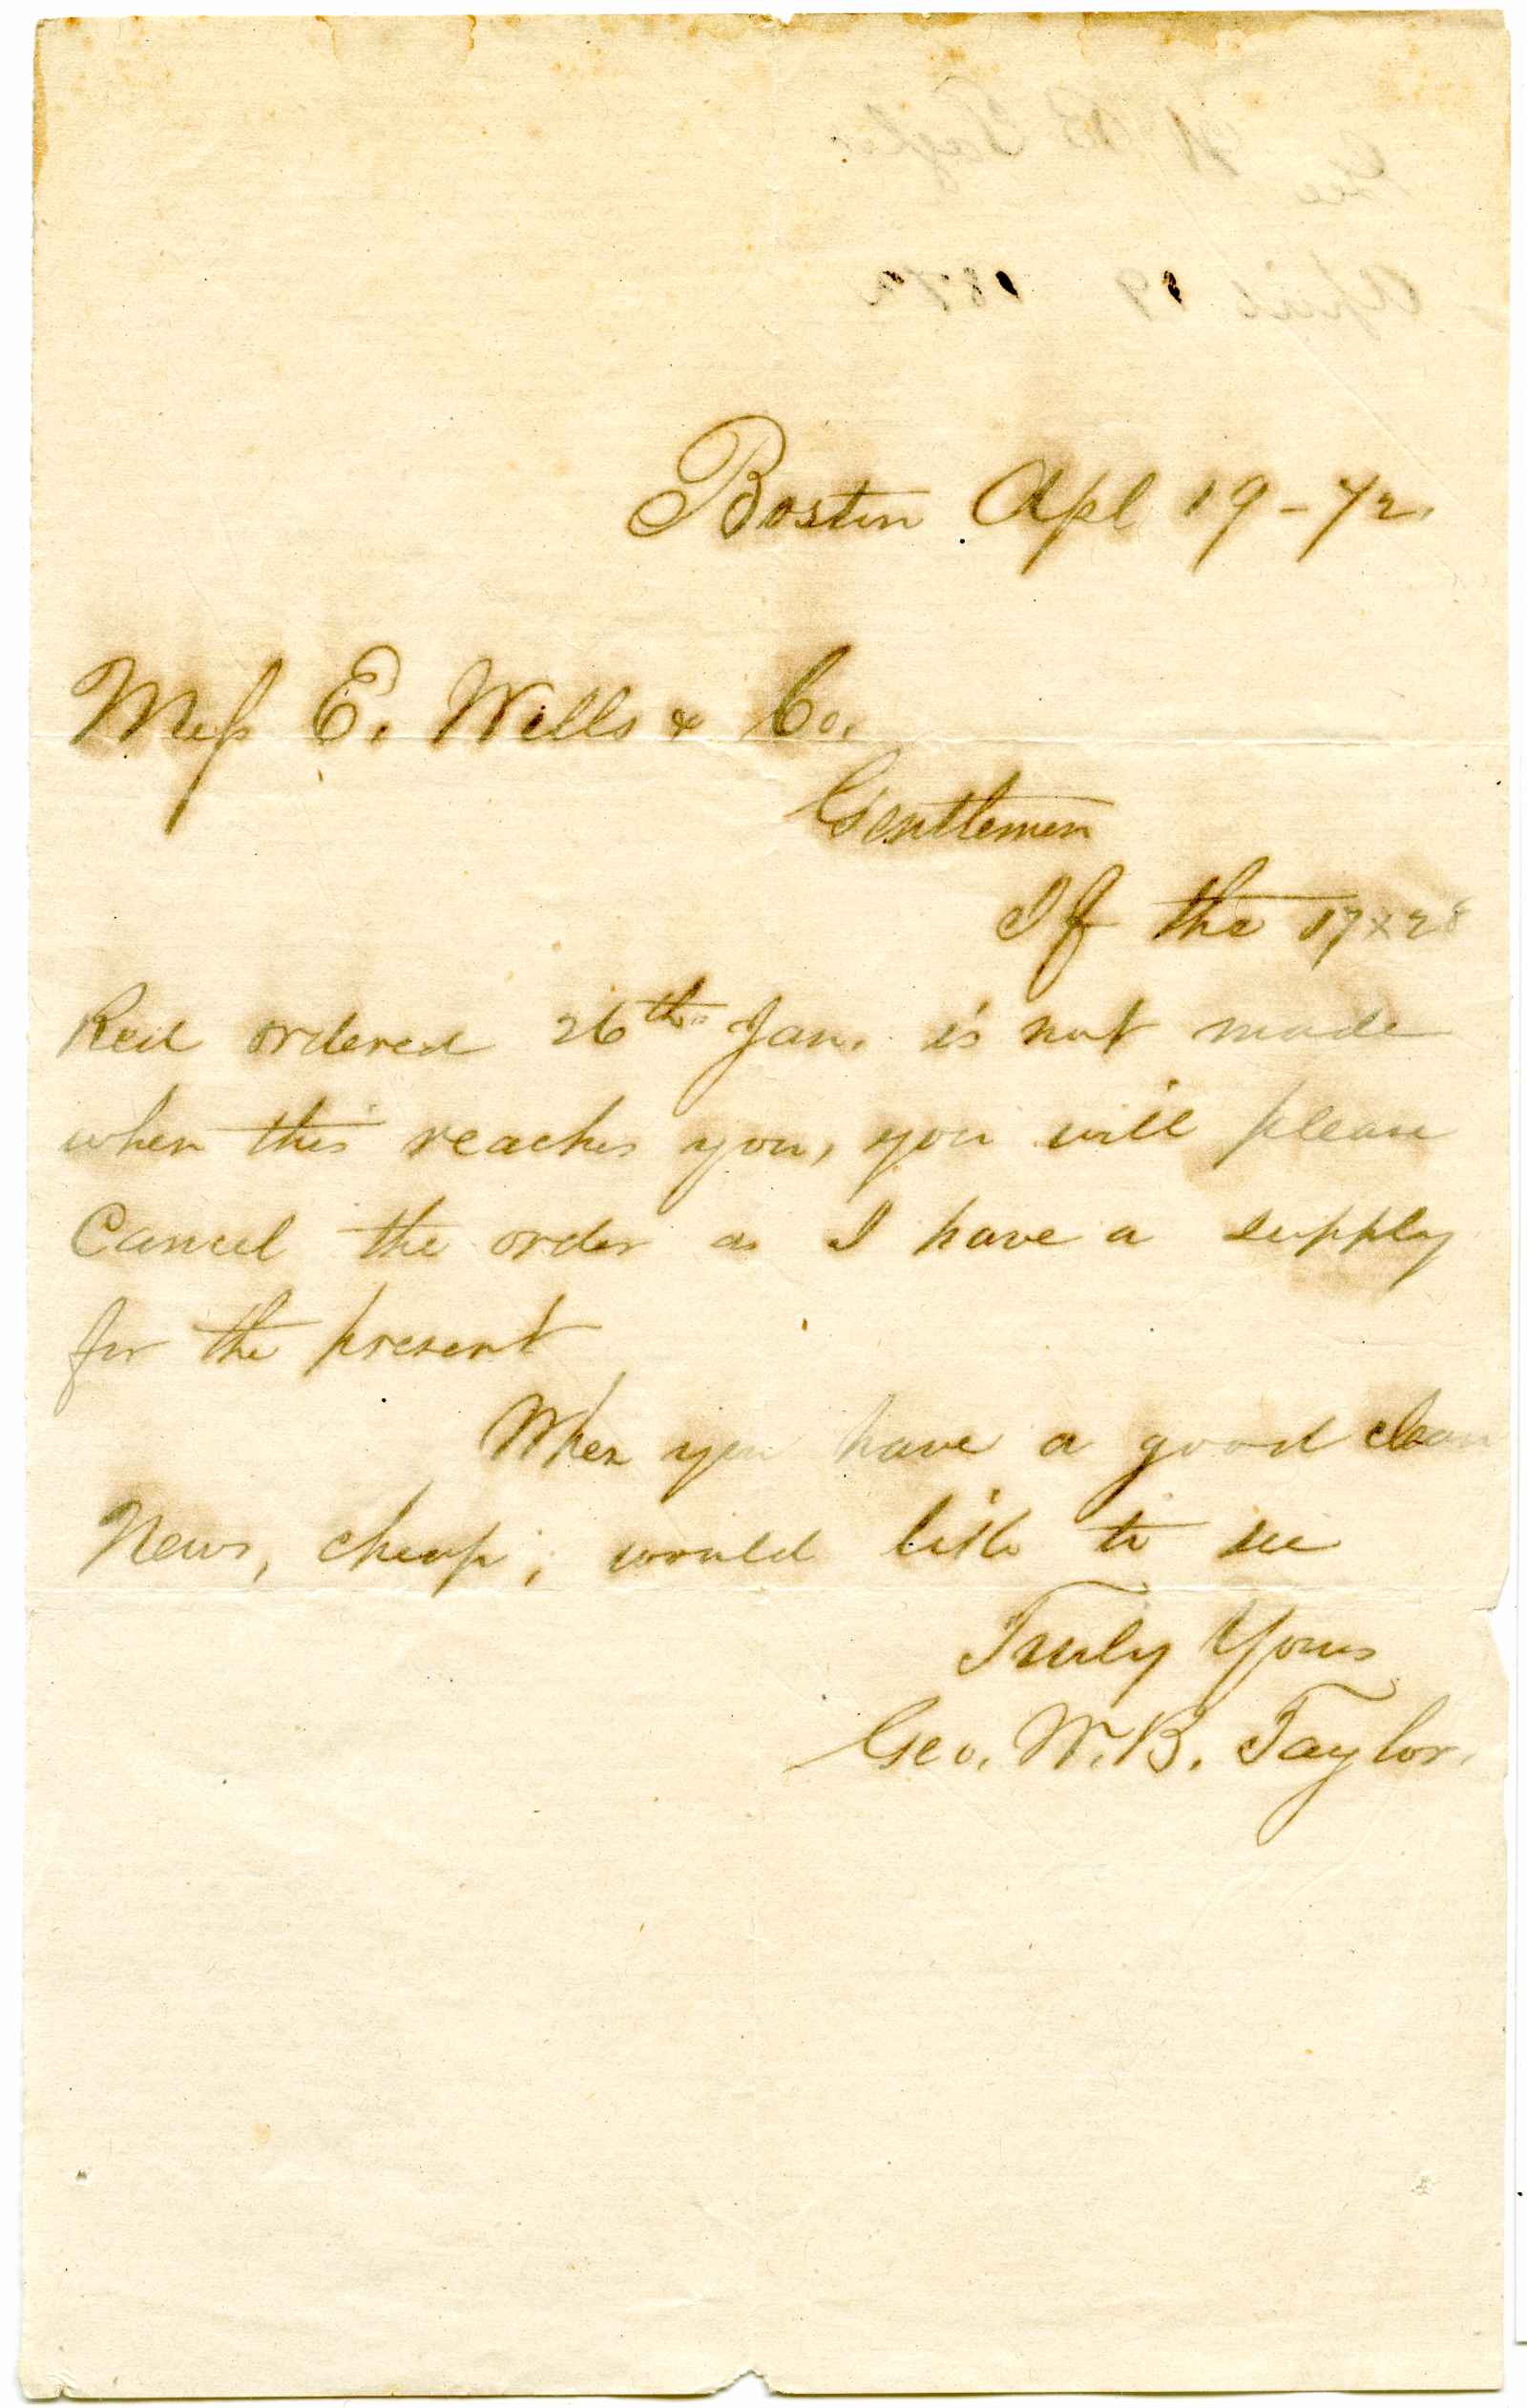 Geo W B Taylor
April 19 1872
Boston Apl 19-72.
Mess E. Wells & Co.
Gentlemen
If the 17x28
Red ordered 26th Jan. is not made
when this reaches you, you will please
Cancel the order as I have a supply
for the present
When you have a good clean
News, cheap, would like to see
Truly Yours
Geo. W. B. Taylor.